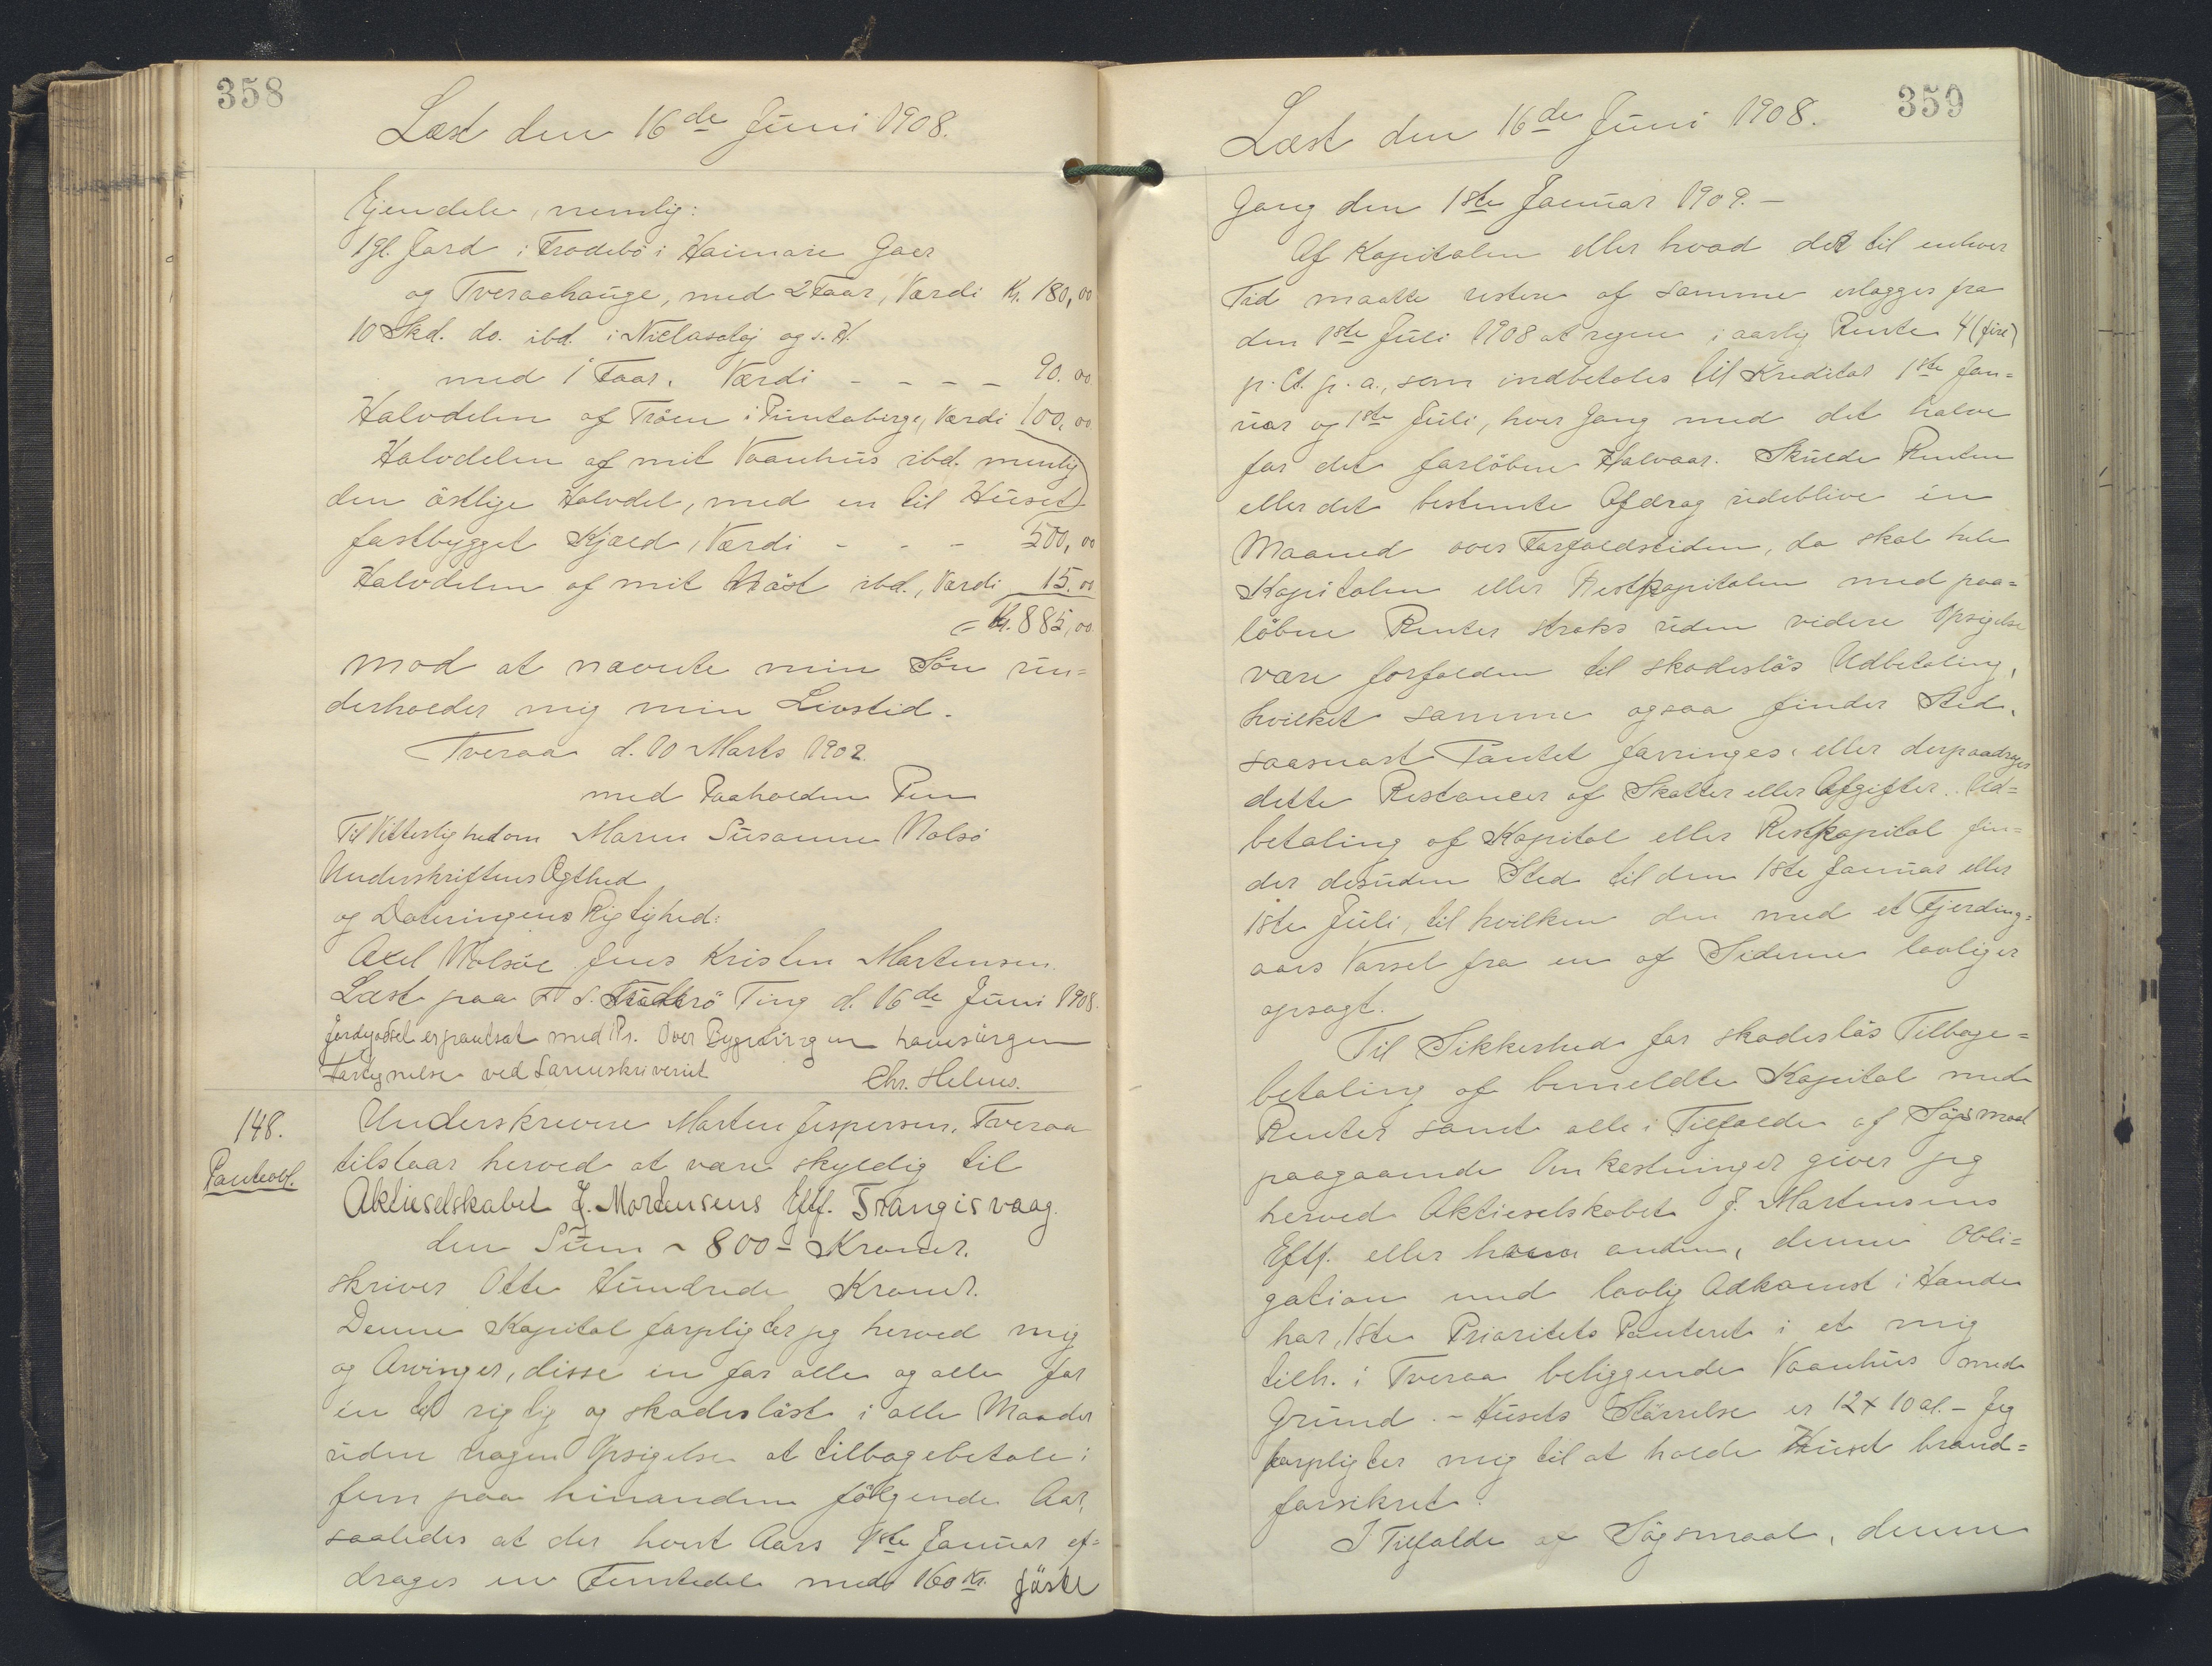 358
Læst den 16de Juni 1908.
Ejendele, nemlig:
1 gl. Jord i Frodebö i Heimare Gaer
og Tveraahauge, med 2 Faar, Værdi Kr. 180,00
10 Skd. do. ibd. i Niclasatoj og s. H.
med 1 Faar. Værdi - - - - 90.00
Halvdelen af Tröen i Runtabirge, Værdi 100,00
Halvdelen af mit Vaanhus ibd. nemlig
den östlige Halvdel, med en til Huset
fastbygget Kjæld, Værdi - - - 500,00
Halvdelen af mit Nöst ibd., Værdi 15.00
= Kr. 885,00
mod at nævnte min Sön un=
derholder mig min Livstid.
Tveraa d. 10 Marts 1902.
med Paaholden Pen
Til Vitterlighed om Maren Susanne Nolsö
Underskriftens Ægthed
og Dateringens Rigtighed:
Axel Nolsöe Jens Kristen Martensen.
Læst paa Suderö Ting d. 16de Juni 1908.
Jordgodset er pantsat med Pr. Over Bygningen haves ingen
Tartegnelse ved Sorenskriveriet Chr. Helms.
148.
Panteobl.
Underskrevne Marten Jespersen, Tveraa
tilstaar herved at være skyldig til
Aktieselskabet J. Mortensens Eftf. Trangisvaag.
den Sum ~ 800 = Kroner.
skriver Otte Hundrede Kroner.
Denne Kapital forpligter jeg herved mig
og Arvinger, disse en for alle og alle for
en til rigtig og skadeslöst i alle Maader
uden nogen Opsigelse at tilbagebetale i
fem paa hinanden fölgende Aar,
saaledes at der hvert Aars 1ste Januar af=
drages en Femtedel med 160 Kr. föste
359
Læst den 16de Juni 1908.
Gang den 1ste Januar 1909. -
Af Kapitalen eller hvad der til enhver
Tid maatte restere af samme erlægges fra
den 1ste Juli 1908 at regne i aarlig Rente 4 (fire)
p. Ct. p. a., som indbetales til Kreditor 1ste Jan=
uar og 1ste Juli, hver Gang med det halve
for det forlöbne Halvaar. Skulde Renten
eller det bestemte Afdrag udeblive én
Maaned over Forfaldstiden, da skal hele
Kapitalen eller Restkapitalen med paa=
löbne Renter straks uden videre Opsigelse
være forfalden til skadeslös Udbetaling,
hvilket samme ogsaa finder Sted,
saasnart Pantet forringes, eller derpaa drages
dette Restancer af Skatter eller Afgifter. Ud=
betaling af Kapital eller Restkapital fin=
der desuden Sted til den 1ste Januar eller
1ste Juli, til hvilken den med et Fjerding=
aars Varsel fra en af Siderne lovliger
opsagt.
Til Sikkerhed for skadeslös Tilbage=
betaling af bemeldte Kapital med
Renter samt alle i Tilfælde af Sögsmaal
paagaaende Omkostninger giver jeg
herved Aktieselskabet J. Martensens
Eftf. eller hvem anden, denne Obli=
gation med lovlig Adkomst i Hænde
har, 1ste Prioritets Panteret i et mig
tilh. i Tveraa beliggende Vaanhus med
Grund. - Husets Störrelse er 12 x 10 al. - Jeg
forpligter mig til at holde Huset brand=
forsikret.
I Tilfælde af Sögsmaal, denne